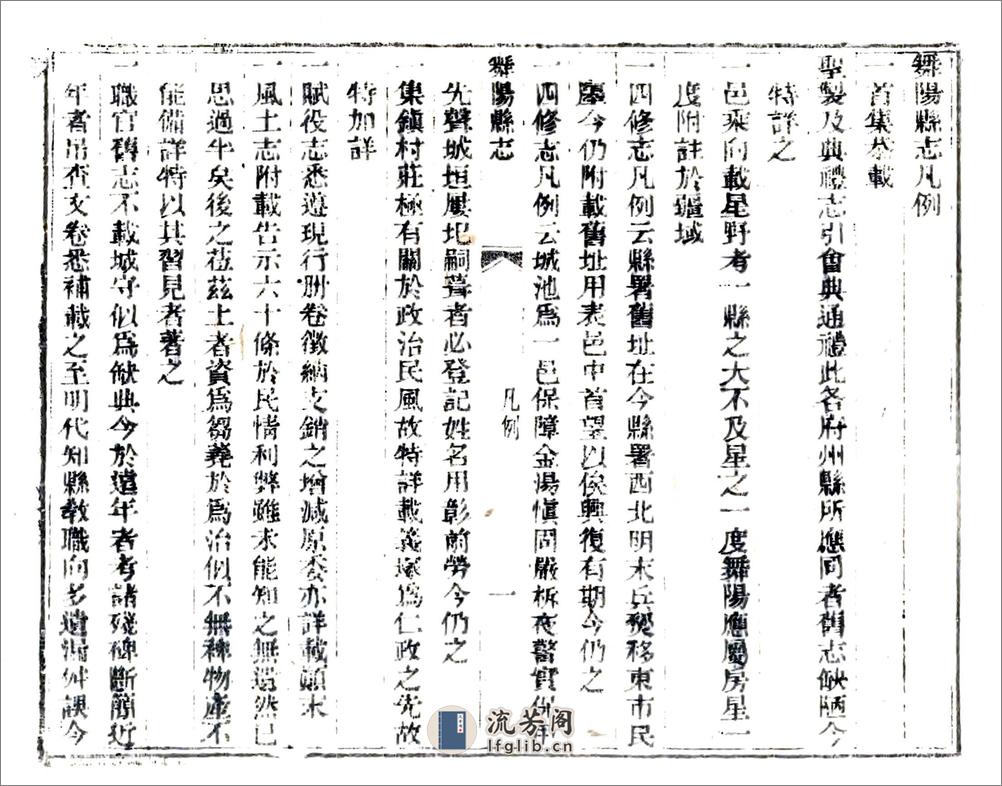 舞陽縣志凡例
一首集恭載
聖製及典禮志引會典通禮此各府州縣所應同者舊志缺陋今
特詳之
一邑乘向載星野考一縣之大不及星之一度舞陽應屬房星一
度附註於疆域
一四修志凡例云縣署舊址在今縣署西北明末兵燹移東市民
廛今仍附載舊址用表邑中首望以俟興復有期今仍之
一四修志凡例云城池為一邑保障金湯愼固嚴柝夜警實
舞陽縣志
凡例
一
先聲城垣屢圮嗣葺者必登記姓名用彰前勞今仍之
一集鎮村莊極有關於政治民風故特詳載義塚為仁政之先故
特加詳
一賦役志悉遵現行册卷徵納支銷之增減原委亦詳載顛末
一風土志附載告示六十條於民情利弊雖未能知之無遺然已
思過半矣後之蒞茲土者資為芻蕘於為治似不無裨物產不
能備詳特以其習見者著之
一職官舊志不載城守似為缺典今於遠年者考諸殘碑斷簡近
年者吊查文卷悉補載之至明代知縣教職向多遺漏舛誤今
流芳阁
lfglib.cn